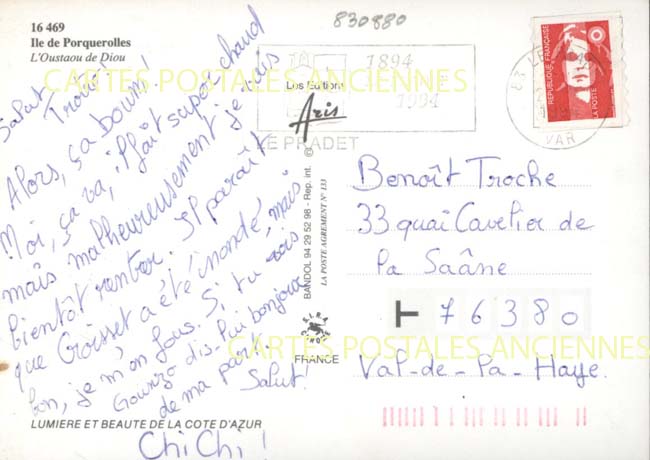 830880
16 469
Ile de Porquerolles
L'Oustaou de Diou
CARTES POSTALES ANCIENNES
Salut Troche!
Alors, ça boum!
Moi, ça va, il fait super chaud
mais malheureusement je vais
bientôt rentrer. Il paraît
que Croisset a été inondé, mais
bon, je m'en fous. Si tu vois
Gounzo dis-lui bonjour
de ma part.
Salut!
ChiChi!
LUMIERE ET BEAUTE DE LA COTE D'AZUR
Les Editions
Aris
BANDOL 94 29 52 98 - Rep. int. ©
LA POSTE AGREMENT N° 133
FRANCE
1894
1994
LE PRADET
VAR
REPUBLIQUE FRANÇAISE
LA POSTE
Benoît Troche
33 quai Cavelier de
la Saâne
76380
CARTES POSTALES ANCIENNES
Val-de-la-Haye.